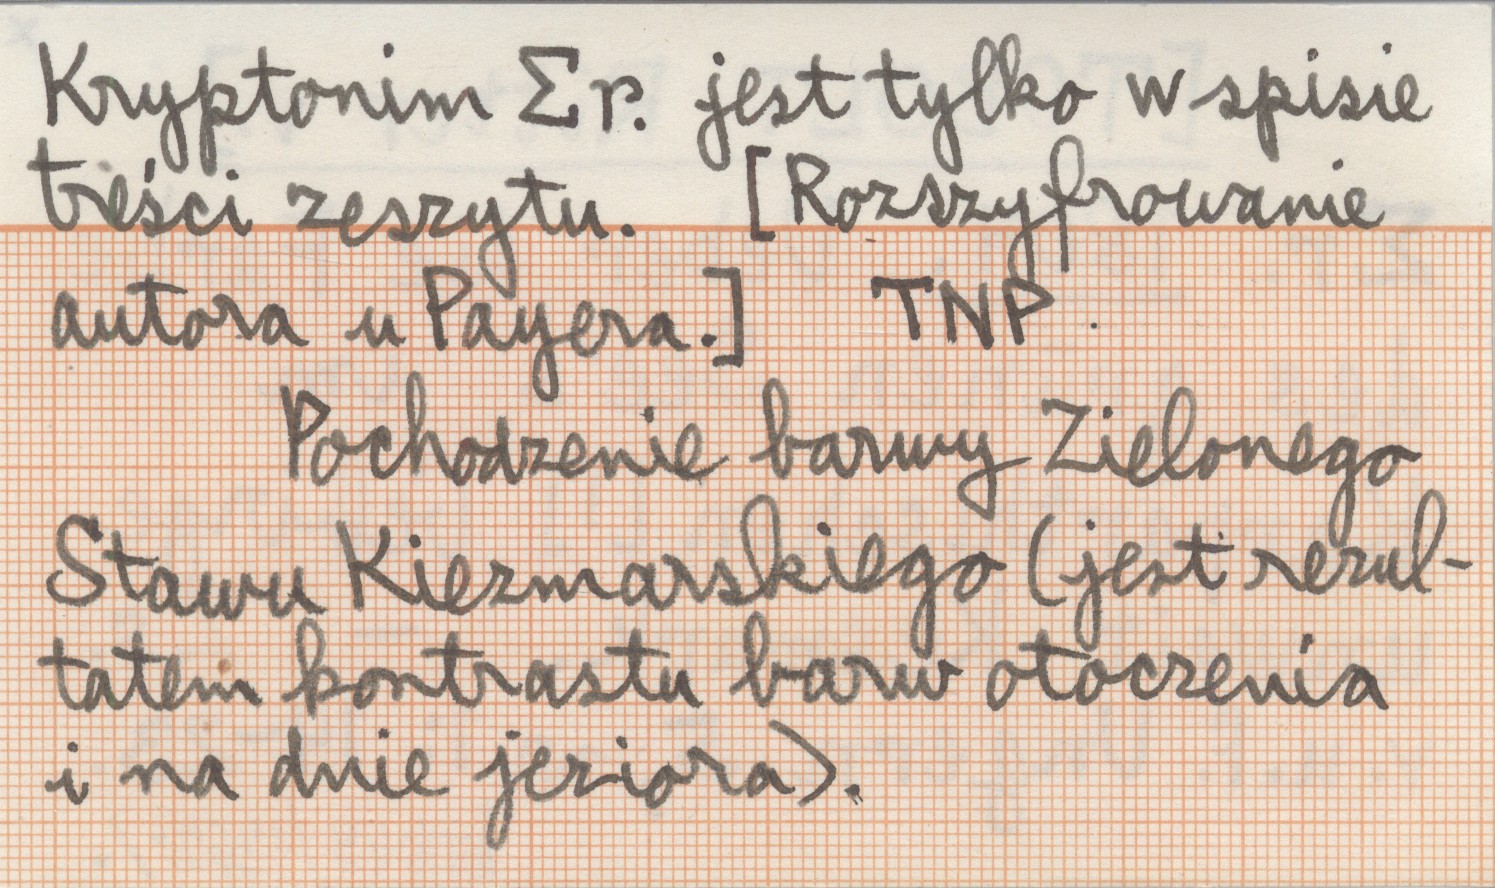 Kryptonim Σp. jest tylko w spisie
treści zeszytu. [Rozszyfrowanie
autora u Payera.] TNP.
Pochodzenie barwy Zielonego
Stawu Kiezmarskiego (jest rezul-
tatem kontrastu barw otoczenia
i na dnie jeziora).